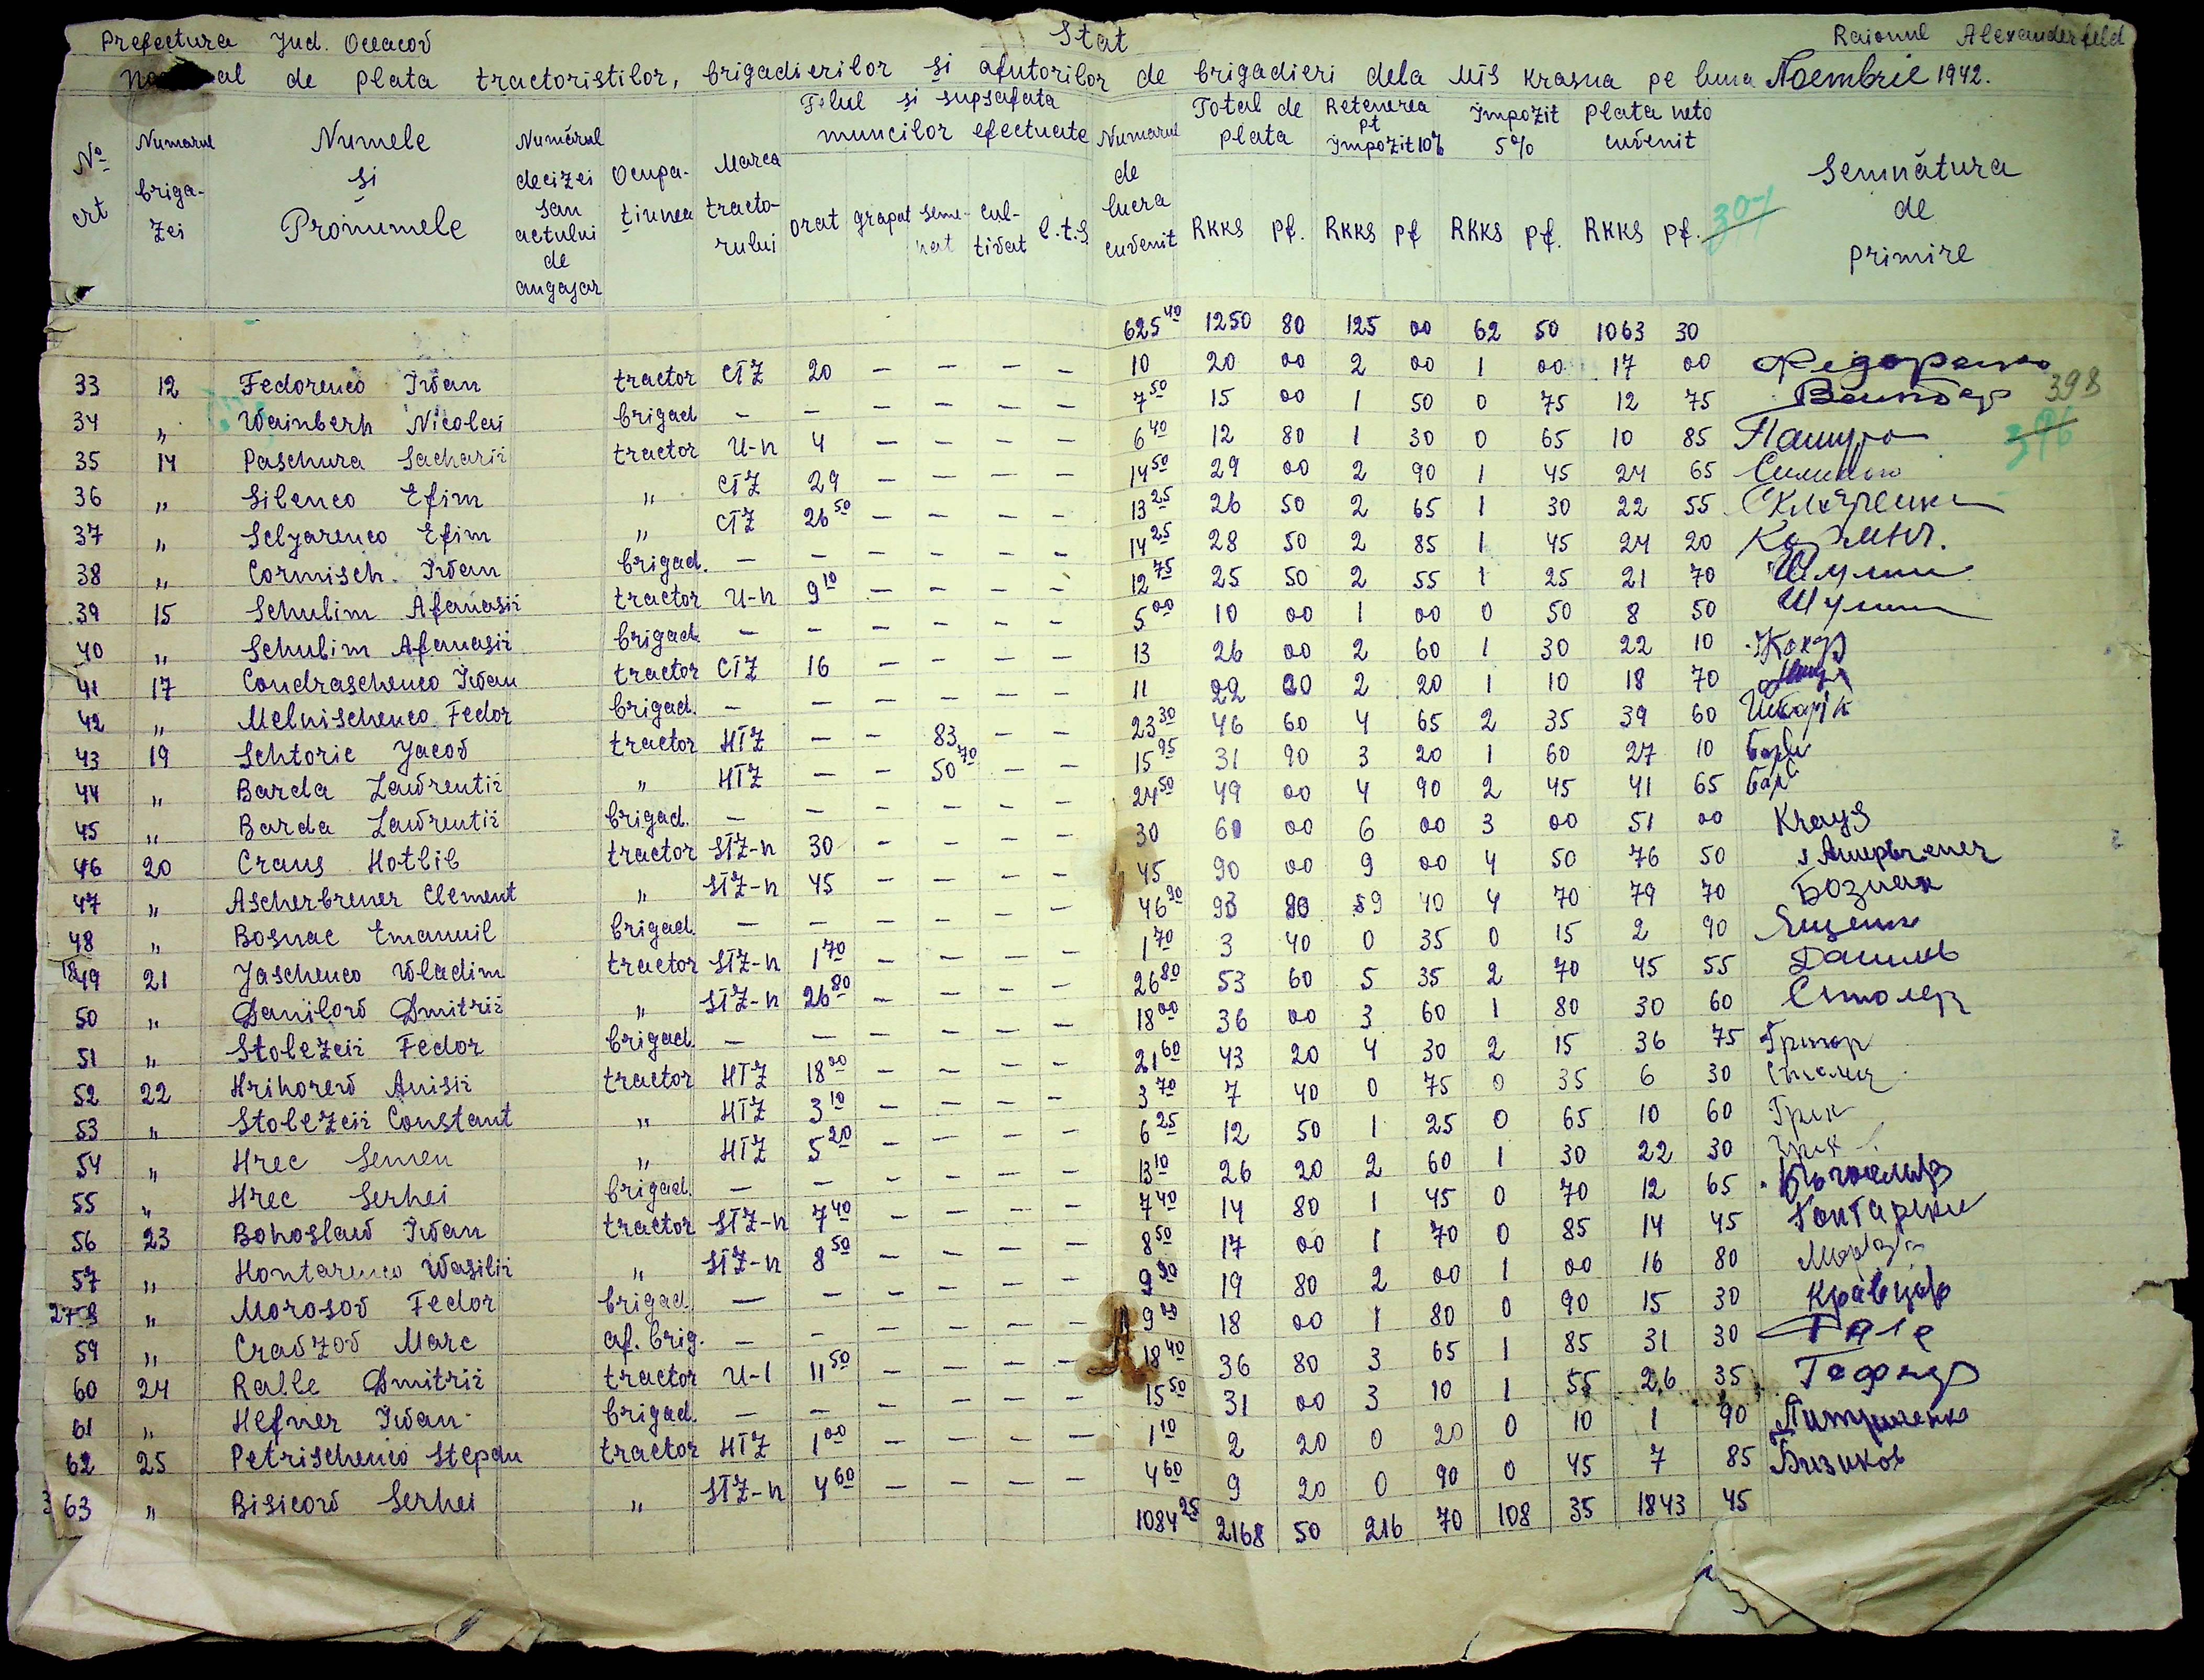 Prefectura Jud. Oceacov Stat Raionul Alexanderfeld
de plata tractoristilor, brigadierilor și afutorilor de brigadieri dela MTS Krasna pe luna Noembrie 1942.
No crt | Numarul briga-zei | Numele și Pronumele | Numărul decizei sau actului de angajar | Ocupa-tiunea | Marca tracto-rului | Felul și supsafata muncilor efectuate | Numarul de lucra cuvenit | Total de plata | Retenerea pt Impozit 10% | Impozit 5% | Plata neto cuvenit | Semnătura de primire
orat | grapat | seme-nat | cul-tivat | C.t.S. | RKKS | pf. | RKKS | pf | RKKS | pf. | RKKS | pf. 307
625 40 1250 80 125 00 62 50 1063 30
33 12 Fedorenco Iwan tractor CTZ 20 — — — — 10 20 00 2 00 1 00 17 00 Федоренко
398
34 „ Wainberh Nicolai brigad — — — — — — 7 50 15 00 1 50 0 75 12 75
396
35 14 Paschura Sacharii tractor U-n 4 — — — — 6 40 12 80 1 30 0 65 10 85 Пашура
36 „ Silenco Efim „ CTZ 29 — — — — 14 50 29 00 2 90 1 45 24 65
37 „ Sclyarenco Efim „ CTZ 26 50 — — — — 13 25 26 50 2 65 1 30 22 55 Скляренко
38 „ Cormisch. Iwan brigad. — — — — — — 14 25 28 50 2 85 1 45 24 20
39 15 Schulim Afanasii tractor U-n 9 10 — — — — 12 75 25 50 2 55 1 25 21 70 Шулим
40 „ Schulim Afanasii brigad. — — — — — — 5 00 10 00 1 00 0 50 8 50 Шулим
41 17 Condraschenco Iwan tractor CTZ 16 — — — — 13 26 00 2 60 1 30 22 10
42 „ Melnischenco Fedor brigad. — — — — — — 11 22 00 2 20 1 10 18 70
43 19 Schtoric Jacov tractor HTZ — — 83 — — 23 30 46 60 4 65 2 35 39 60
44 „ Barda Lawrentii „ HTZ — — 50 70 — — 15 95 31 90 3 20 1 60 27 10
45 „ Barda Lawrentii brigad. — — — — — — 24 50 49 00 4 90 2 45 41 65
46 20 Craus Hotlib tractor STZ-n 30 — — — — 30 60 00 6 00 3 00 51 00 Krays
47 „ Ascherbrener Clement „ STZ-n 45 — — — — 45 90 00 9 00 4 50 76 50
48 „ Bosnac Emanuil brigad. — — — — — — 46 90 93 80 9 40 4 70 79 70 Бознак
49 21 Jaschenco Wladim tractor STZ-n 1 70 — — — — 1 70 3 40 0 35 0 15 2 90 Ященко
50 „ Danilow Dmitrii „ STZ-n 26 80 — — — — 26 80 53 60 5 35 2 70 45 55 Данилов
51 „ Stolezeii Fedor brigad — — — — — — 18 00 36 00 3 60 1 80 30 60
52 22 Hrihorew Anisii tractor HTZ 18 00 — — — — 21 60 43 20 4 30 2 15 36 75
53 „ Stolezeii Constant „ HTZ 3 10 — — — — 3 70 7 40 0 75 0 35 6 30
54 „ Hrec Semen „ HTZ 5 20 — — — — 6 25 12 50 1 25 0 65 10 60 Грек
55 „ Hrec Serhei brigad. — — — — — — 13 10 26 20 2 60 1 30 22 30
56 23 Bohoslaw Iwan tractor STZ-n 7 40 — — — — 7 40 14 80 1 45 0 70 12 65
57 „ Hontarenco Wasilii „ STZ-n 8 50 — — — — 8 50 17 00 1 70 0 85 14 45
58 „ Morosov Fedor brigad. — — — — — — 9 90 19 80 2 00 1 00 16 80
59 „ Cravzov Marc af. brig. — — — — — — 9 00 18 00 1 80 0 90 15 30
60 24 Ralle Dmitrii tractor U-1 11 50 — — — — 18 40 36 80 3 65 1 85 31 30
61 „ Hefner Iwan brigad. — — — — — — 15 50 31 00 3 10 1 55 26 35
62 25 Petrischenco Stepan tractor HTZ 1 00 — — — — 1 10 2 20 0 20 0 10 1 90
63 „ Bisicow Serhei „ STZ-n 4 60 — — — — 4 60 9 20 0 90 0 45 7 85 Бизиков
1084 25 2168 50 216 70 108 35 1843 45